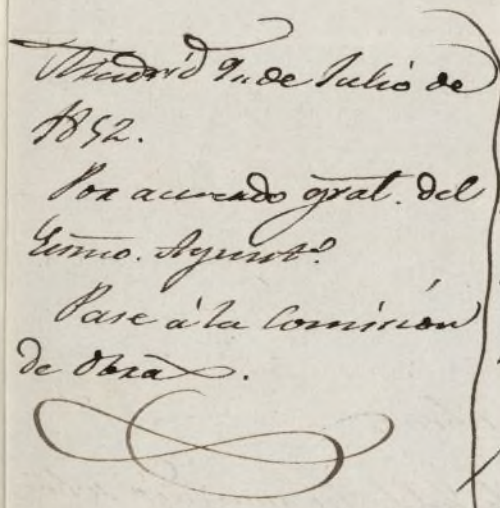 Madrid 9,, de Julio de
1852.
Por acuerdo gral. del
Exmo. Ayunto.
Pase á la Comision
de Obras.